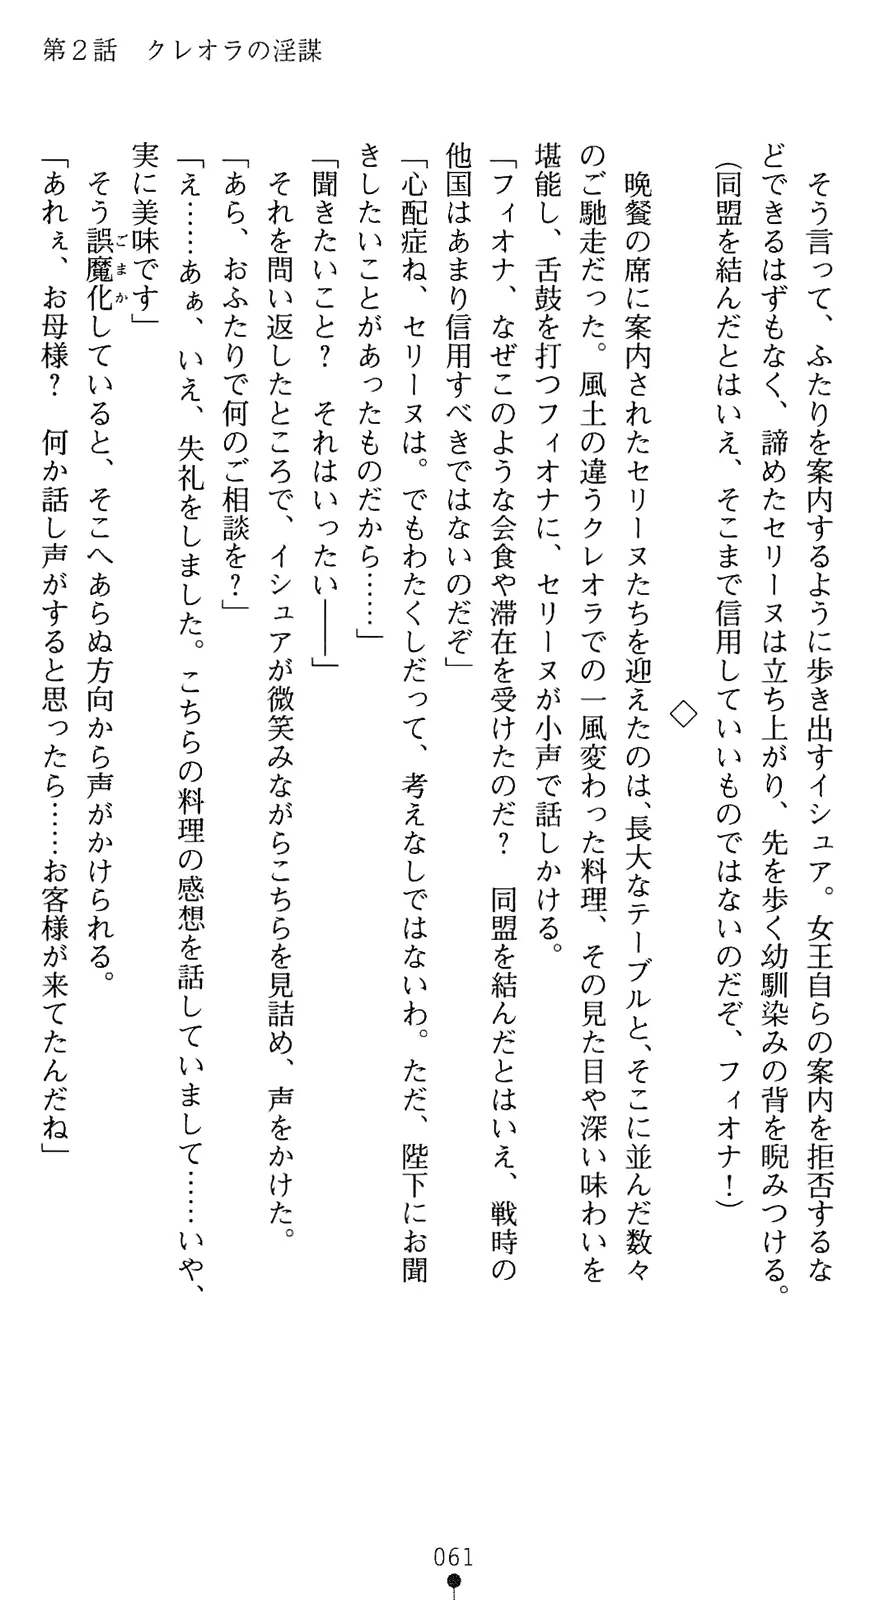 第２話　クレオラの淫謀
　そう言って、ふたりを案内するように歩き出すイシュア。女王自らの案内を拒否するな
どできるはずもなく、諦めたセリーヌは立ち上がり、先を歩く幼馴染みの背を睨みつける。
（同盟を結んだとはいえ、そこまで信用していいものではないのだぞ、フィオナ！）
◇
　晩餐の席に案内されたセリーヌたちを迎えたのは、長大なテーブルと、そこに並んだ数々
のご馳走だった。風土の違うクレオラでの一風変わった料理、その見た目や深い味わいを
堪能し、舌鼓を打つフィオナに、セリーヌが小声で話しかける。
「フィオナ、なぜこのような会食や滞在を受けたのだ？　同盟を結んだとはいえ、戦時の
他国はあまり信用すべきではないのだぞ」
「心配症ね、セリーヌは。でもわたくしだって、考えなしではないわ。ただ、陛下にお聞
きしたいことがあったものだから……」
「聞きたいこと？　それはいったい――」
　それを問い返したところで、イシュアが微笑みながらこちらを見詰め、声をかけた。
「あら、おふたりで何のご相談を？」
「え……あぁ、いえ、失礼をしました。こちらの料理の感想を話していまして……いや、
実に美味です」
　そう誤魔化ごまかしていると、そこへあらぬ方向から声がかけられる。
「あれぇ、お母様？　何か話し声がすると思ったら……お客様が来てたんだね」
061